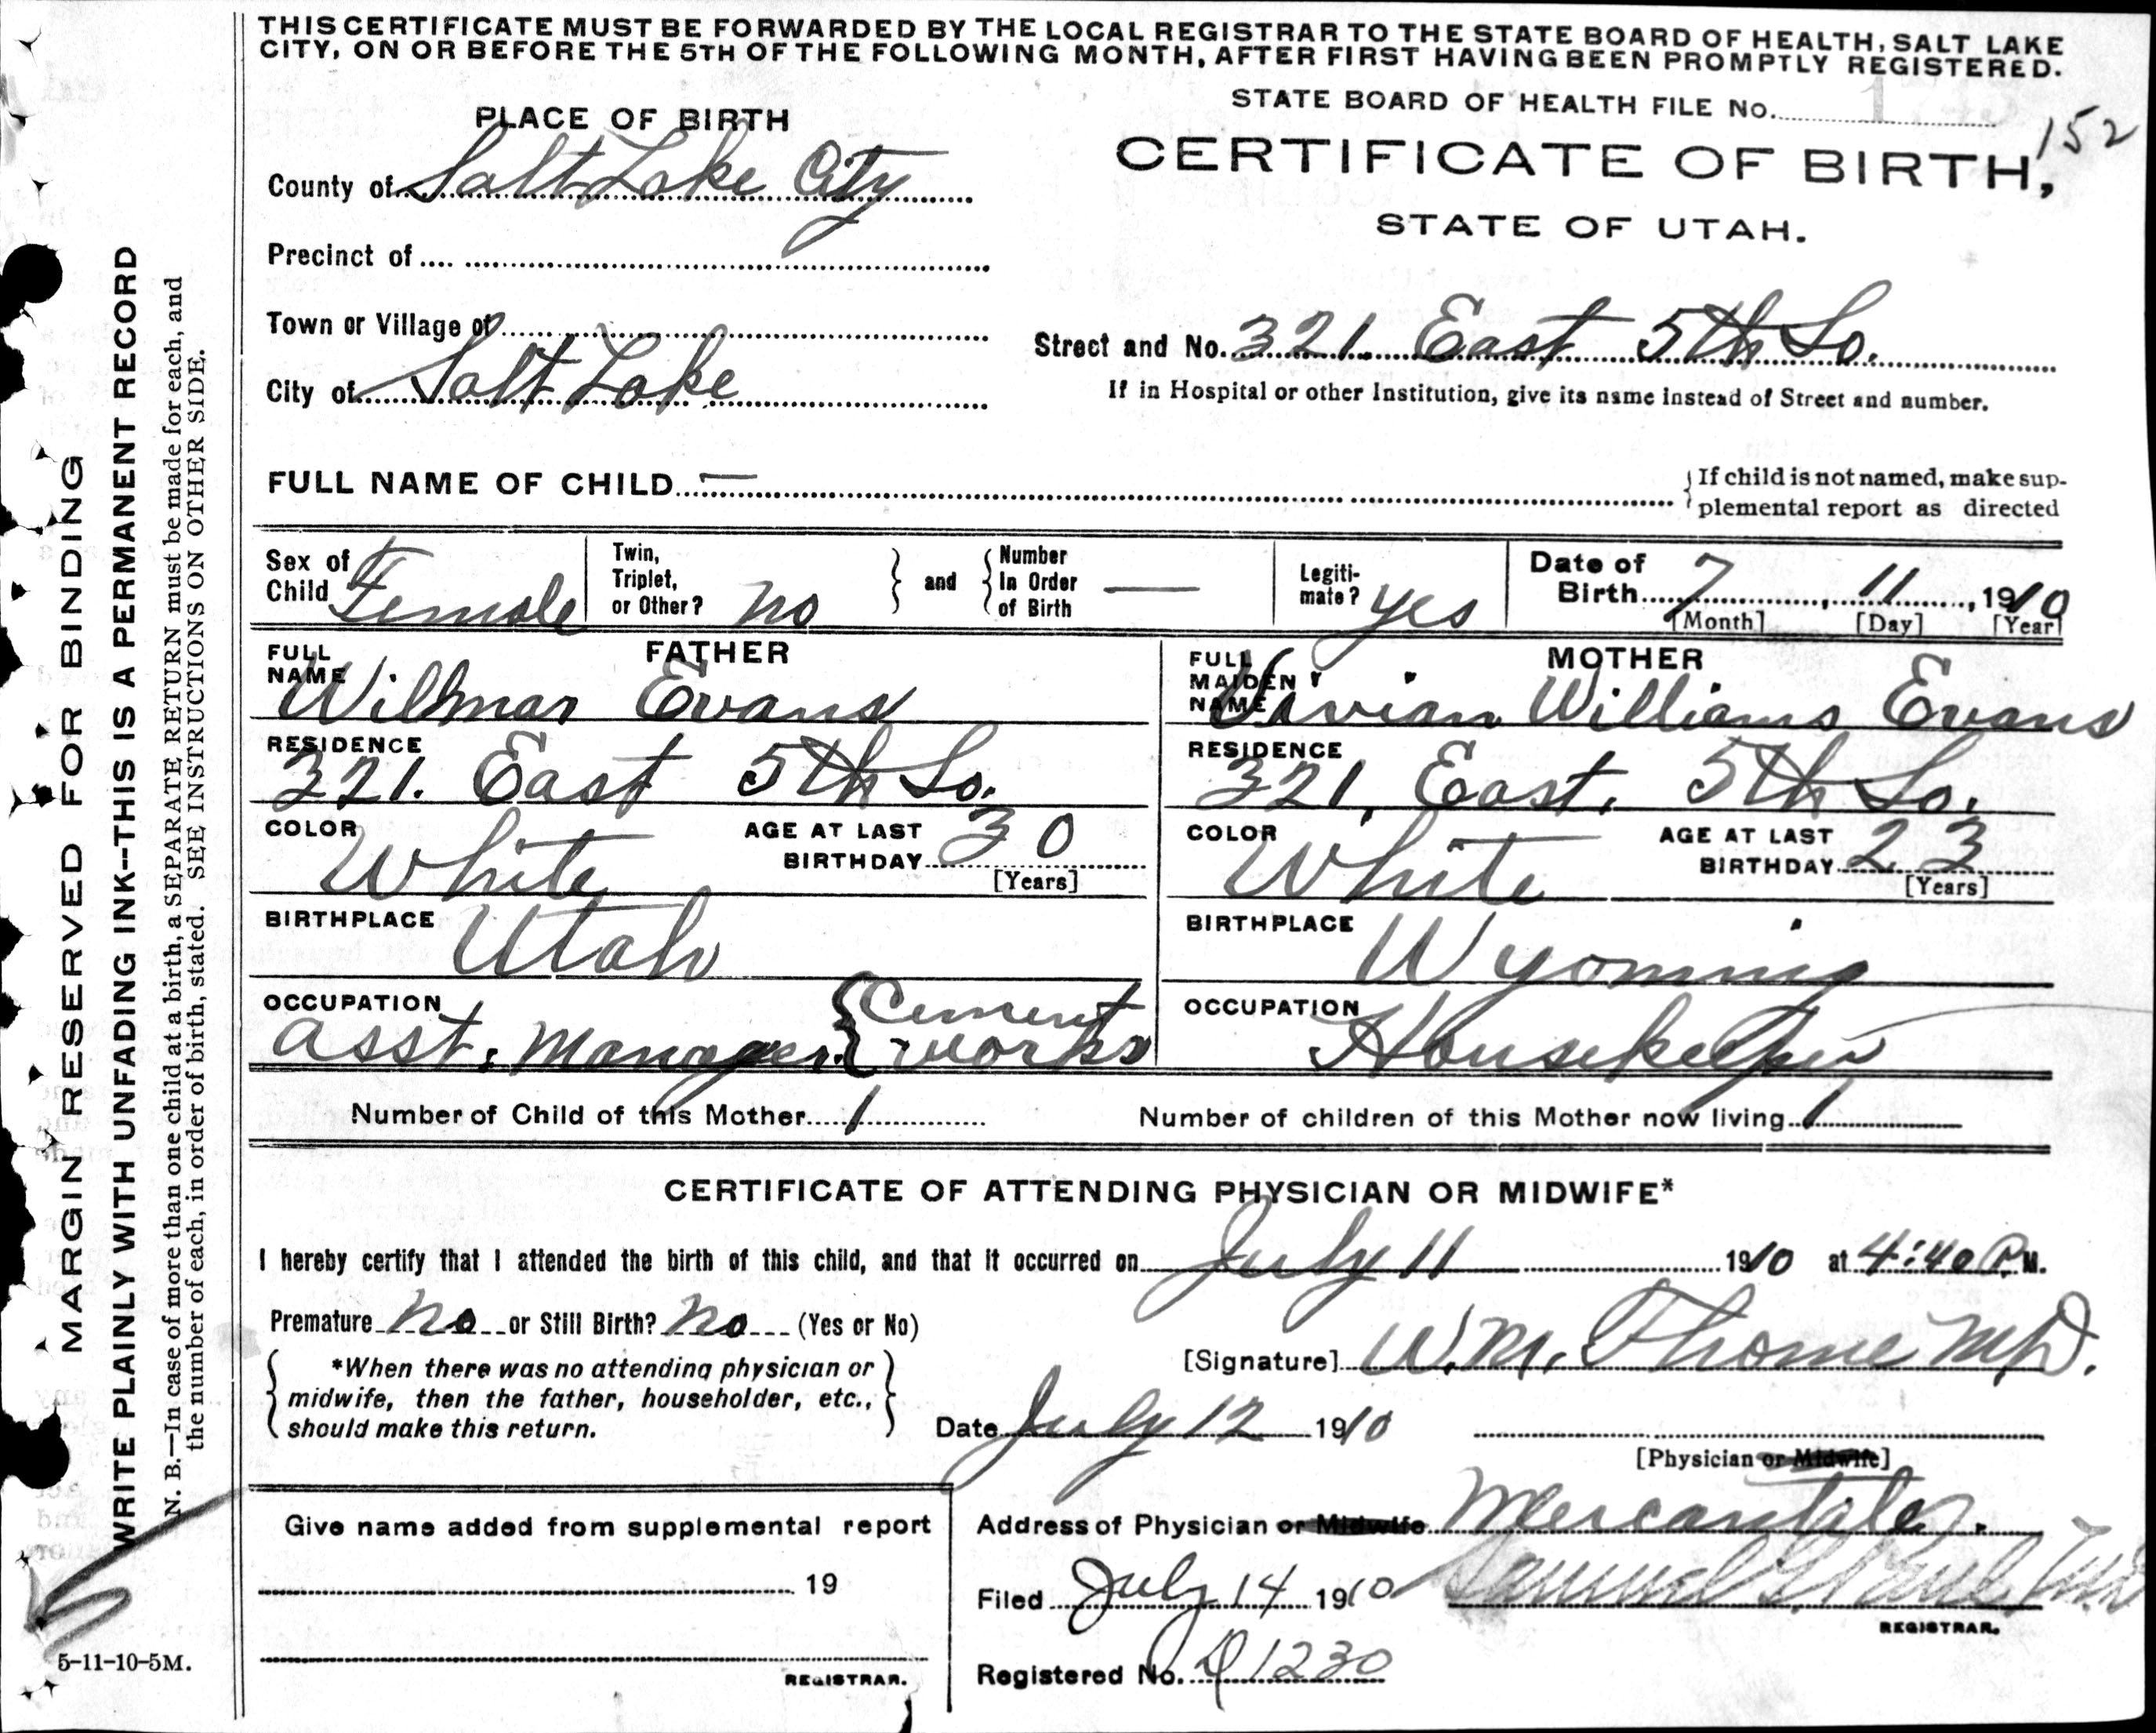 THIS CERTIFICATE MUST BE FORWARDED BY THE LOCAL REGISTRAR TO THE STATE BOARD OF HEALTH, SALT LAKE
CITY, ON OR BEFORE THE 5TH OF THE FOLLOWING MONTH, AFTER FIRST HAVING BEEN PROMPTLY REGISTERED.
STATE BOARD OF HEALTH FILE No. 1
152
PLACE OF BIRTH
CERTIFICATE OF BIRTH,
STATE OF UTAH.
County of Salt Lake City
Precinct of
Town or Village of
Street and No. 321. East 5th So.
City of Salt Lake
If in Hospital or other Institution, give its name instead of Street and number.
FULL NAME OF CHILD —
If child is not named, make sup-
plemental report as directed
Sex of Child Female
Twin, Triplet, or Other? no
and
Number In Order of Birth —
Legiti-mate? yes
Date of Birth 7, 11, 1910
[Month] [Day] [Year]
FATHER
FULL NAME Wilmar Evans
RESIDENCE 321. East 5th So.
COLOR White
AGE AT LAST BIRTHDAY 30
[Years]
BIRTHPLACE Utah
OCCUPATION asst. Manager { Cement works
MOTHER
FULL MAIDEN NAME Vivian Williams Evans
RESIDENCE 321, East, 5th So.
COLOR White
AGE AT LAST BIRTHDAY 23
[Years]
BIRTHPLACE Wyoming
OCCUPATION Housekeeper
Number of Child of this Mother 1
Number of children of this Mother now living 1
CERTIFICATE OF ATTENDING PHYSICIAN OR MIDWIFE*
I hereby certify that I attended the birth of this child, and that it occurred on July 11 1910 at 4:40 P.M.
Premature no or Still Birth? no (Yes or No)
*When there was no attending physician or
midwife, then the father, householder, etc.,
should make this return.
[Signature] W.M. Thome M.D.
Date July 12 1910
[Physician or Midwife]
Address of Physician or Midwife Mercantile.
Filed July 14 1910 Samuel G. Paul M.D.
REGISTRAR.
Registered No. D 1230
Give name added from supplemental report
19
REGISTRAR.
MARGIN RESERVED FOR BINDING
WRITE PLAINLY WITH UNFADING INK--THIS IS A PERMANENT RECORD
N. B.—In case of more than one child at a birth, a SEPARATE RETURN must be made for each, and
the number of each, in order of birth, stated. SEE INSTRUCTIONS ON OTHER SIDE.
5-11-10-5M.